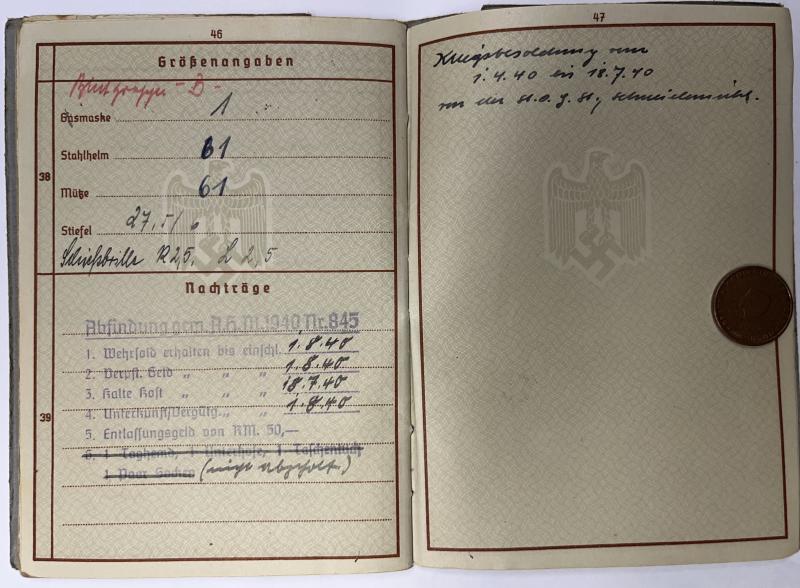 46
Größenangaben
Blutgruppe - B -
Gasmaske 1
38
Stahlhelm 61
Mütze 61
Stiefel 27,5/6
Schießbrille R 2,5, L 2,5
Nachträge
Abfindung gem. A.H.M. 1940 Nr. 845
1. Wehrsold erhalten bis einschl. 1.8.40
2. Verpfl. Geld „ „ „ 1.8.40
3. Kalte Kost „ „ „ 18.7.40
39
4. Unterkunft/Vergütg. „ „ 1.8.40
5. Entlassungsgeld von RM. 50,—
6. 1 Taghemd, 1 Unterhose, 1 Taschentuch
1 Paar Socken (nicht abgeholt)
47
Kriegsbesoldung vom
1.4.40 bis 18.7.40
von der St.O.G.St. Schneidemühl.